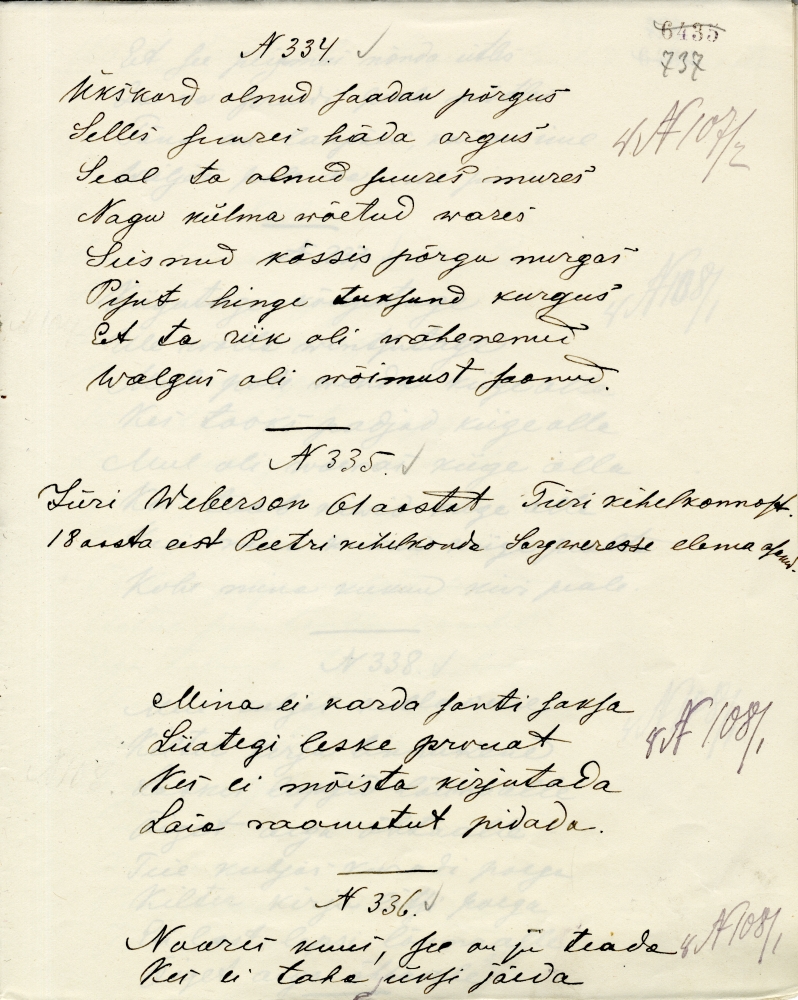 6435
737
N 334.
Ükskord olnud saadan põrgus
Selles suures häda orgus
8 N 107/2
Seal ta olnud suures mures
Nagu külma wõetud wares
Seisnud kössis põrgu nurgas
Pisut hinge tuksund kurgus
Et ta riik oli wähenenud
Walgus oli wõimust saanud.
N 335.
Jüri Weberson 61 aastat Türi kihelkonnast.
18 aasta eest Peetri kihelkonda Sargweresse elama asund.
Mina ei karda santi saksa
8 N 108/1
Liiategi leske prouat
Kes ei mõista kirjutada
Laia raamatut pidada.
N 336.
Noores kuus, see on ju teada
8 N 108/1
Kes ei taha üksi jäeda